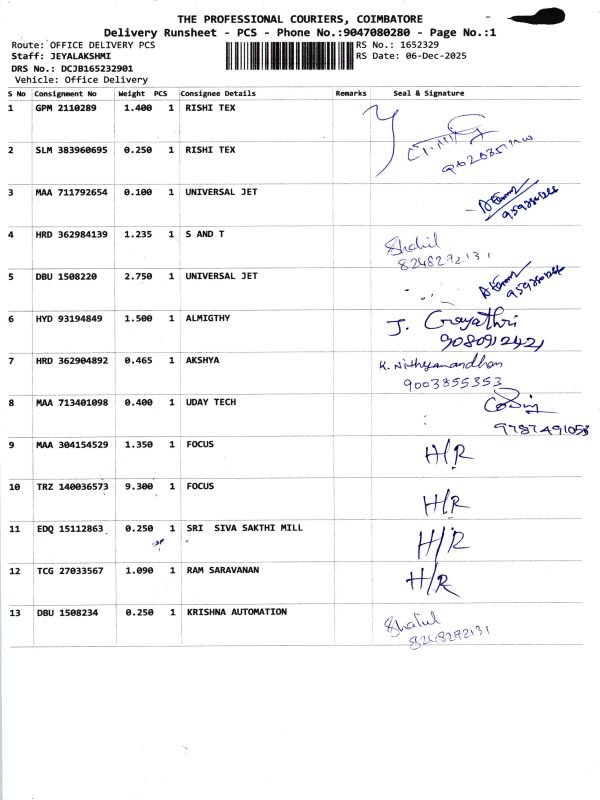 THE PROFESSIONAL COURIERS, COIMBATORE
Delivery Runsheet - PCS - Phone No.:9047080280 - Page No.:1
Route: OFFICE DELIVERY PCS RS No.: 1652329
Staff: JEYALAKSHMI RS Date: 06-Dec-2025
DRS No.: DCJB165232901
Vehicle: Office Delivery
S No Consignment No Weight PCS Consignee Details Remarks Seal & Signature
1 GPM 2110289 1.400 1 RISHI TEX
2 SLM 383960695 0.250 1 RISHI TEX
3 MAA 711792654 0.100 1 UNIVERSAL JET
4 HRD 362984139 1.235 1 S AND T Shahil
8248292131
5 DBU 1508220 2.750 1 UNIVERSAL JET
6 HYD 93194849 1.500 1 ALMIGTHY J. Gayathri
9080912421
7 HRD 362904892 0.465 1 AKSHYA K. Nithyanandhan
9003855353
8 MAA 713401098 0.400 1 UDAY TECH
9787491053
9 MAA 304154529 1.350 1 FOCUS H/R
10 TRZ 140036573 9.300 1 FOCUS H/R
11 EDQ 15112863 0.250 1 SRI SIVA SAKTHI MILL H/R
12 TCG 27033567 1.090 1 RAM SARAVANAN H/R
13 DBU 1508234 0.250 1 KRISHNA AUTOMATION Shahil
8248292131